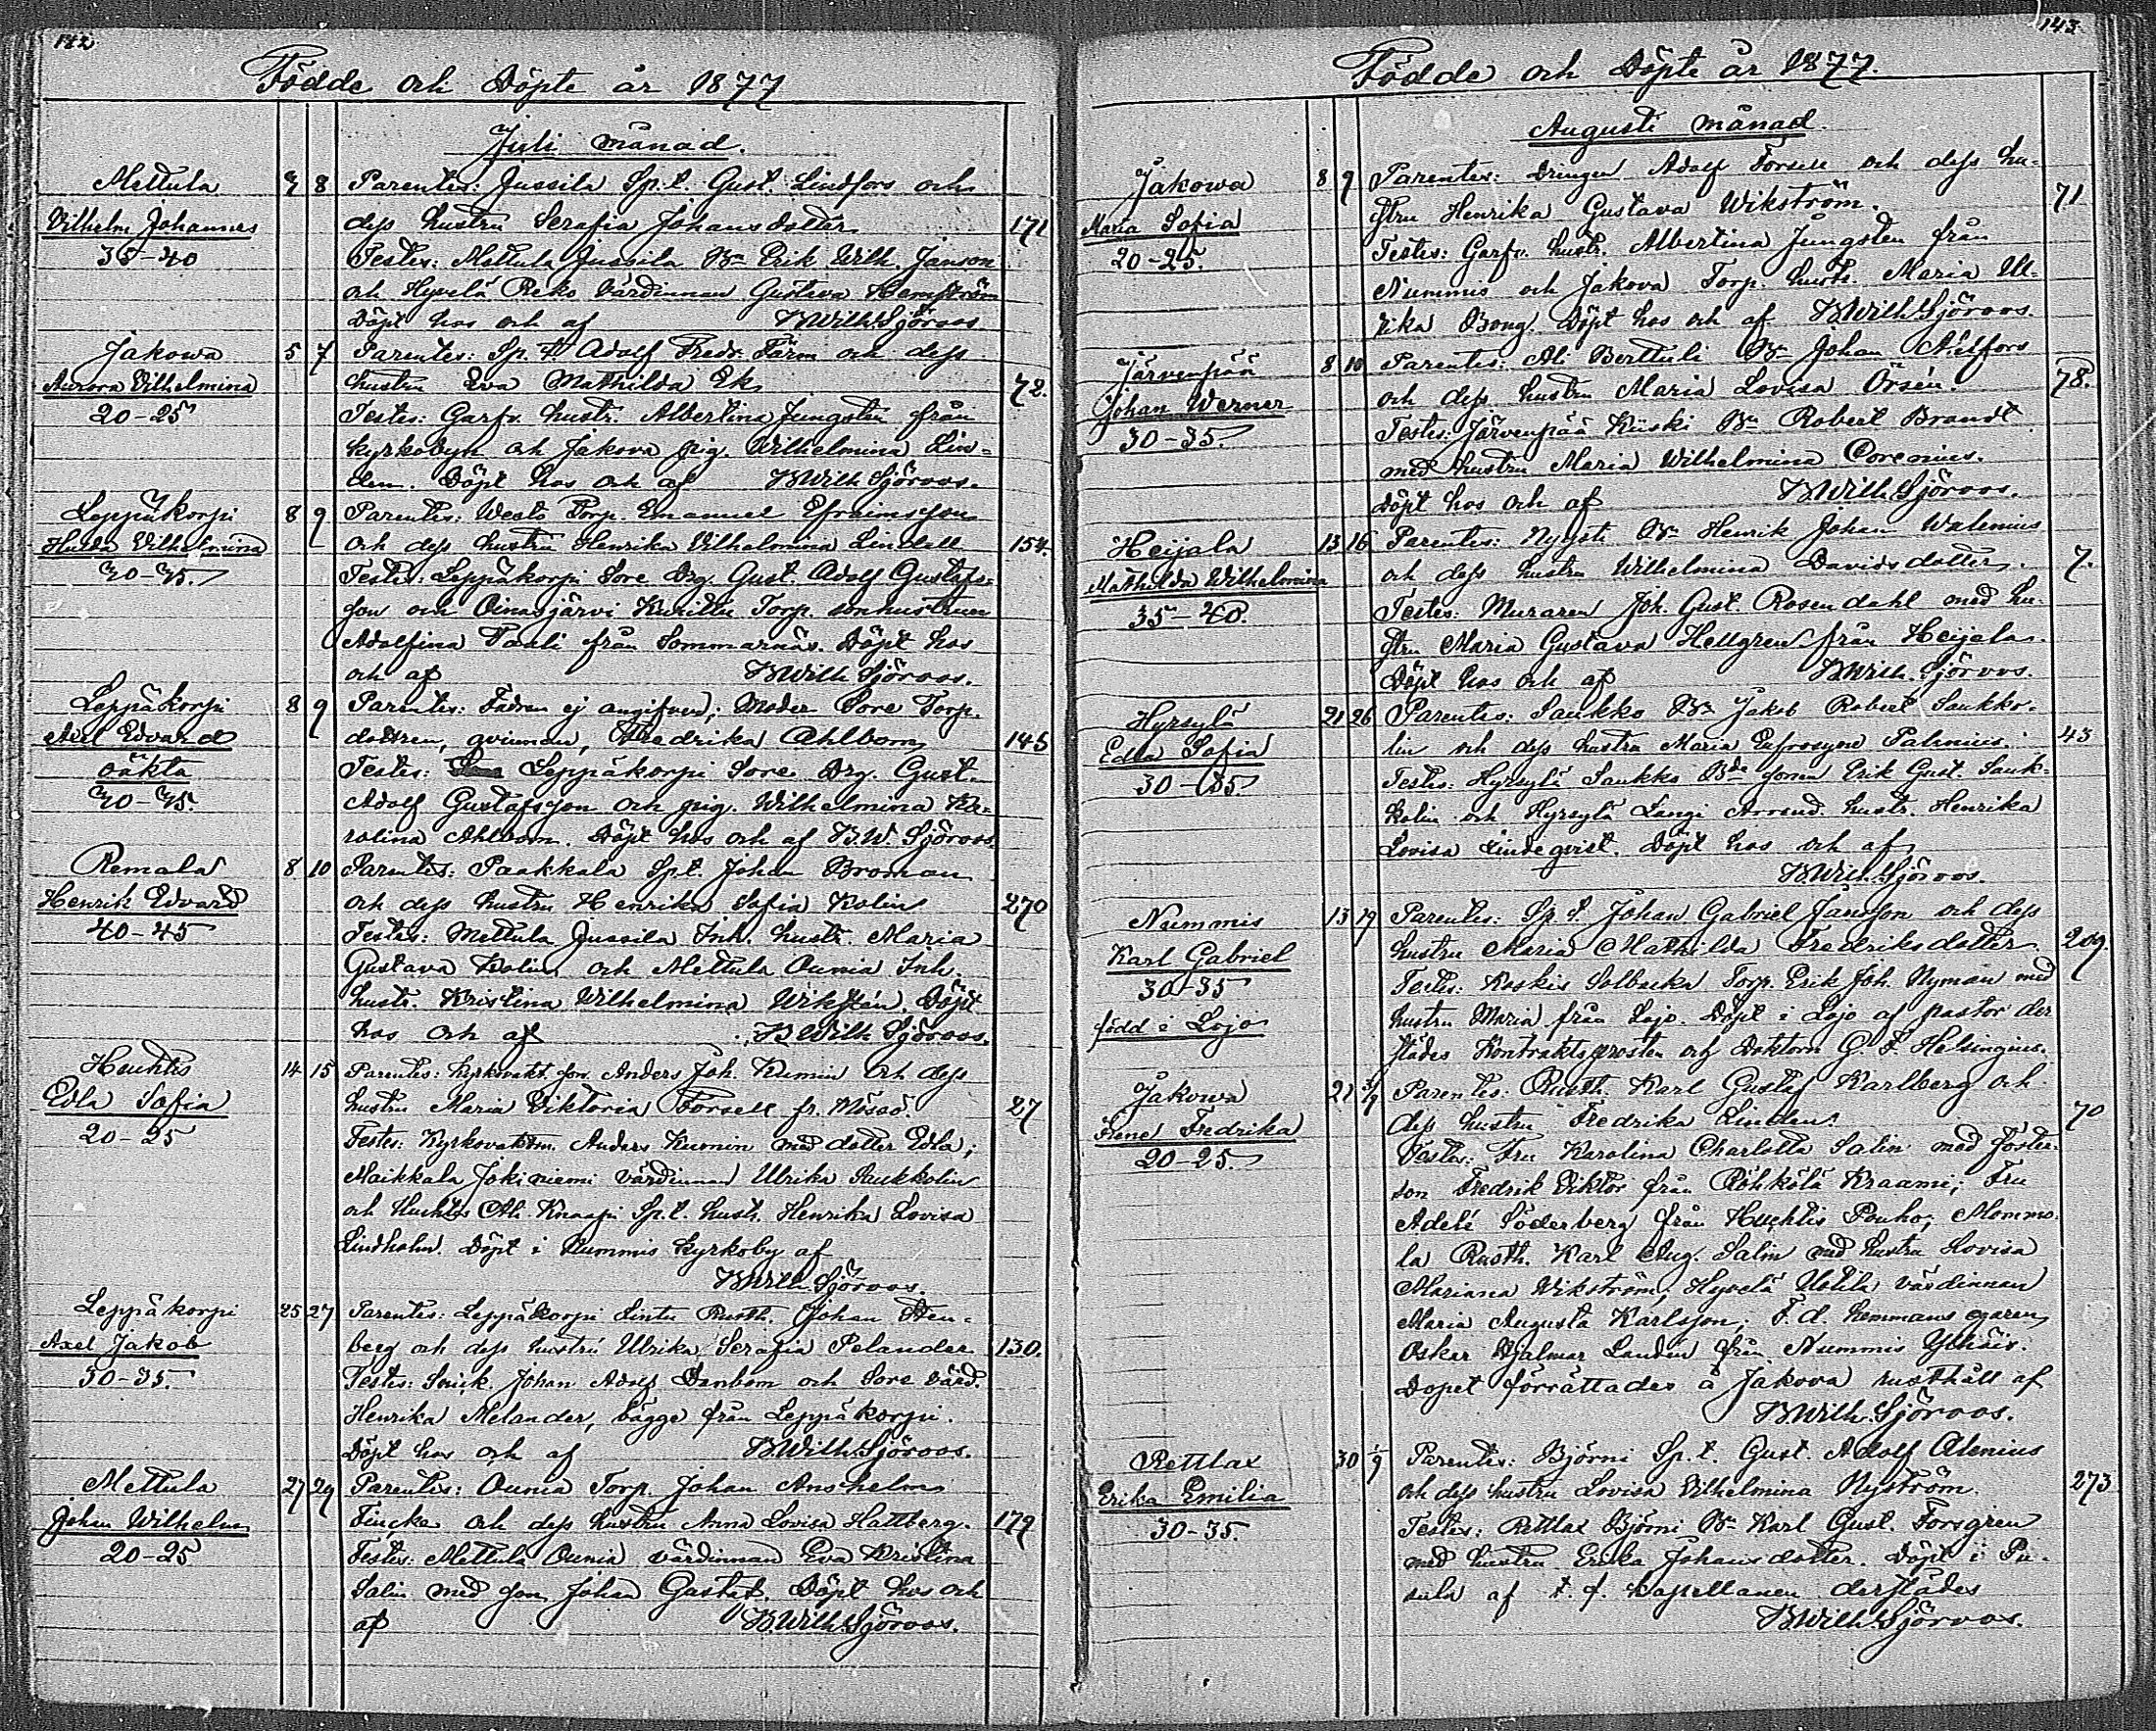 142
Födde och Döpte år 1877
Juli månad.
Mettula 7 8 Parentes: Jussila Sp.t. Gust. Lindfors och
Vilhelm Johannes dess hustru Serafia Johansdotter 171
35-40 Testes: Mettula Jussila Bn Erik Wilh. Janson
och Hyvelä Reko värdinnan Gustava Hemström
Döpt hos och af B Wilh. Sjöroos
Jakowa 5 7 Parentes: Sp.t. Adolf Fredr. Färm och dess
Aurora Vilhelmina hustru Eva Mathilda Ek 72.
20-25 Testes: Garfv. hustr. Albertina Jungsten från
kyrkobyn och Jakova pig. Wilhelmina Lin-
den. Döpt hos och af B Wilh Sjöroos.
Leppäkorpi 8 9 Parentes: Westo Torp. Emanuel Efraimsson
Hulda Vilhelmina och dess hustru Henrika Vilhelmina Lindell 154.
30-35. Testes: Leppäkorpi Sore Drg. Gust. Adolf Gustafs-
son och Oinasjärvi Torp. sonhustrun
Adolfina Pauli från Sommarnäs. Döpt hos
och af B Wilh Sjöroos.
Leppäkorpi 8 9 Parentes: Fadren ej angifven; Moder Sore Torp.
Axel Edvard dottren, qvinnan, Fredrika Ahlbom 145
oäkta Testes: Leppäkorpi Sore Drg. Gust.
30-35. Adolf Gustafsson och pig. Wilhelmina Ka-
rolina Ahlbom. Döpt hos och af B.W. Sjöroos.
Remala 8 10 Parentes: Paakkala Sp.t. Johan Broman
Henrik Edvard och dess hustru Henrika Sofia Kolin 270
40-45 Testes: Mettula Jussila Inh. hustr. Maria
Gustava Kolin och Mettula Ounia Inh.
hustr. Kristina Wilhelmina Wiksten. Döpt
hos och af B Wilh Sjöroos.
Huhtis 14 15 Parentes: Kyrkovakt. son Anders Joh. Kumin och dess
Edla Sofia hustru Maria Viktoria Forsell fr. 27
20-25 Testes: Kyrkovakten Anders Kumin med dotter Edla;
Maikkala Jokiniemi värdinnan Ulrika Saukkolin
och Huhtis Ali Knaapi Sp.t. hustr. Henrika Lovisa
Lindholm. Döpt i Nummis kyrkoby af
B Wilh Sjöroos.
Leppäkorpi 25 27 Parentes: Leppäkorpi Lintu Rusth. Johan Sten-
Axel Jakob berg och dess hustru Ulrika Serafia Pelander 130.
30-35. Testes: Snick. Johan Adolf Danbom och Sore värd.
Henrika Melander, bägge från Leppäkorpi.
Döpt hos och af B Wilh. Sjöroos.
Mettula 27 29 Parentes: Ounia Torp. Johan Anshelm
Johan Wilhelm Fincke och dess hustru Anna Lovisa Hallberg. 179
20-25 Testes: Mettula Ounia värdinnan Eva Kristina
Salin med son Johan Gustaf. Döpt hos och
af B.Wilh. Sjöroos.
143
Födde och Döpte år 1877.
Augusti månad.
Jakowa 8 9 Parentes: Drängen Adolf Forsell och dess hu-
Maria Sofia stru Henrika Gustava Wikström. 71
20-25. Testes: Garfv. hustr. Albertina Jungsten från
Nummis och Jakova Torp. hustr. Maria Ul-
rika Bong. Döpt hos och af B Wilh. Sjöroos.
Järvenpää 8 10 Parentes: Ali Berttuli Bn Johan Alfors
Johan Werner och dess hustru Maria Lovisa Örsén. 78.
30-35. Testes: Järvenpää Kiiski Bn Robert Brandt
med hustru Maria Wilhelmina Corenius.
Döpt hos och af B Wilh. Sjöroos.
Heijala 13 16 Parentes: Nygst. Bn Henrik Johan Walenius
Mathilda Wilhelmina och dess hustru Wilhelmina Davidsdotter. 7.
35-40. Testes: Muraren Joh. Gust. Rosendahl med hu-
stru Maria Gustava Hellgren från Heijala.
Döpt hos och af B Wilh. Sjöroos.
Hyrsylä 21 26 Parentes: Saukko Bn Jakob Robert Saukko-
Edla Sofia lin och dess hustru Maria Eufrosyne Palenius. 43
30-35 Testes: Hyrsylä Saukko Bde sonen Erik Gust. Sauk-
kolin och Hyrsylä Langi Arrend. hustr. Henrika
Lovisa Lindeqvist. Döpt hos och af
B Wilh. Sjöroos.
Nummis 13 19 Parentes: Sp.t. Johan Gabriel Jansson och dess
Karl Gabriel hustru Maria Mathilda Fredriksdotter 209.
30-35 Testes: Koskis Solbacka Torp. Erik Joh. Nyman med
född i Lojo hustru Maria från Lojo. Döpt i Lojo af pastor der
städes Kontraktsprosten och Doktorn G. F. Helsingius.
Jakowa 21 3/9 Parentes: Rusth. Karl Gustaf Karlberg och
Irene Fredrika dess hustru Fredrika Linden. 70
20-25. Testes: Fru Karolina Charlotta Salin med foster-
son Fredrik Viktor från Röhkölä Kraami; Fru
Adele Söderberg från Huhtis Pouho; Mommo-
la Rusth. Karl Aug. Salin med hustru Lovisa
Mariana Wikström, Hyvelä Uotila värdinnan
Maria Augusta Karlsson; F.d. hemmans egaren
Oskar Hjalmar Landen från Nummis Ylihäis.
Dopet förrättades å Jakova rusthåll af
B Wilh. Sjöroos.
Rettlax 30 1/9 Parentes: Björni Sp.t. Gust. Adolf Alenius
Erika Emilia och dess hustru Lovisa Vilhelmina Nyström. 273
30-35. Testes: Rettlax Björni Bn Karl Gust. Forsgren
med hustru Erika Johansdotter. Döpt i Pu-
sula af t. f. Kapellanen derstädes
B Wilh. Sjöroos.